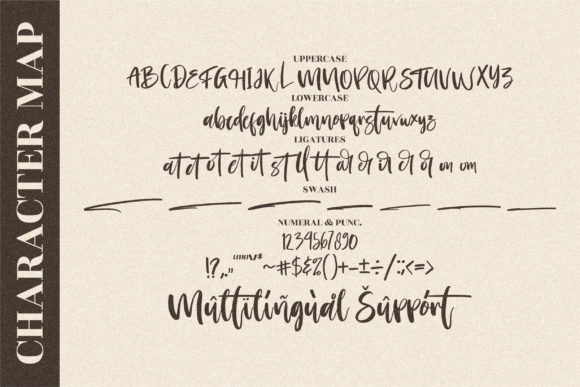 CHARACTER MAP
UPPERCASE
ABCDEFGHIJKLMNOPQRSTUVWXYZ
LOWERCASE
abcdefghijklmnopqrstuvwxyz
LIGATURES
at et ot ct it st ll tt ar er ir cr or on om
SWASH
NUMERAL & PUNC.
1234567890
!?,."
~#$&%()+-±÷/:;<=>
Mûttïlíñgùål Šûppórt